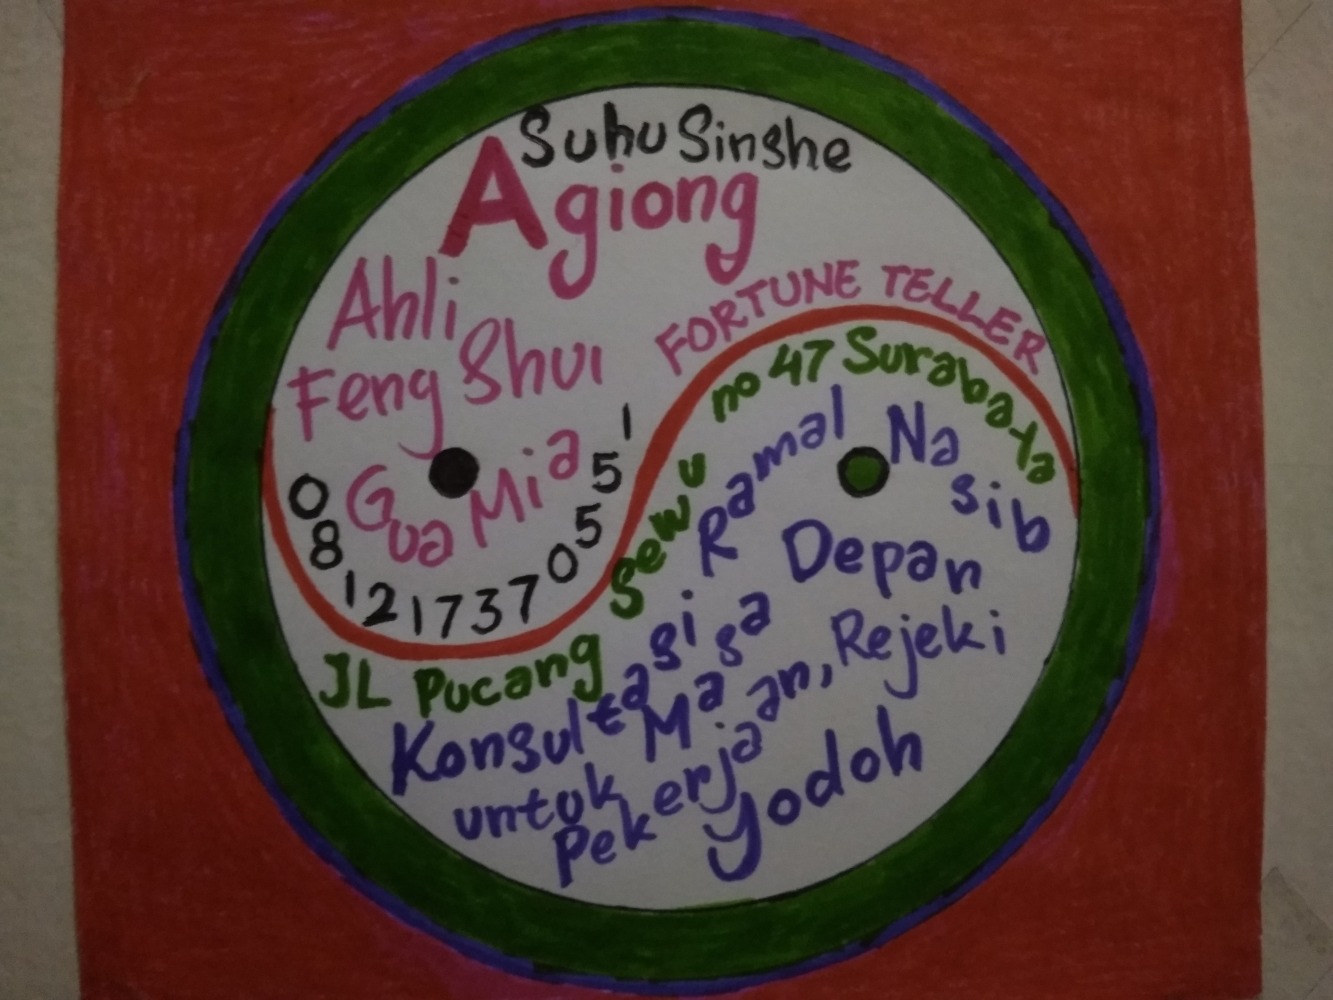 Suhu Sinshe
Agiong
Ahli
Feng Shui
Gua Mia
081217370551
FORTUNE TELLER
JL Pucang Sewu no 47 Surabaya
Konsultasi Ramal Nasib
untuk Masa Depan
Pekerjaan, Rejeki
Jodoh